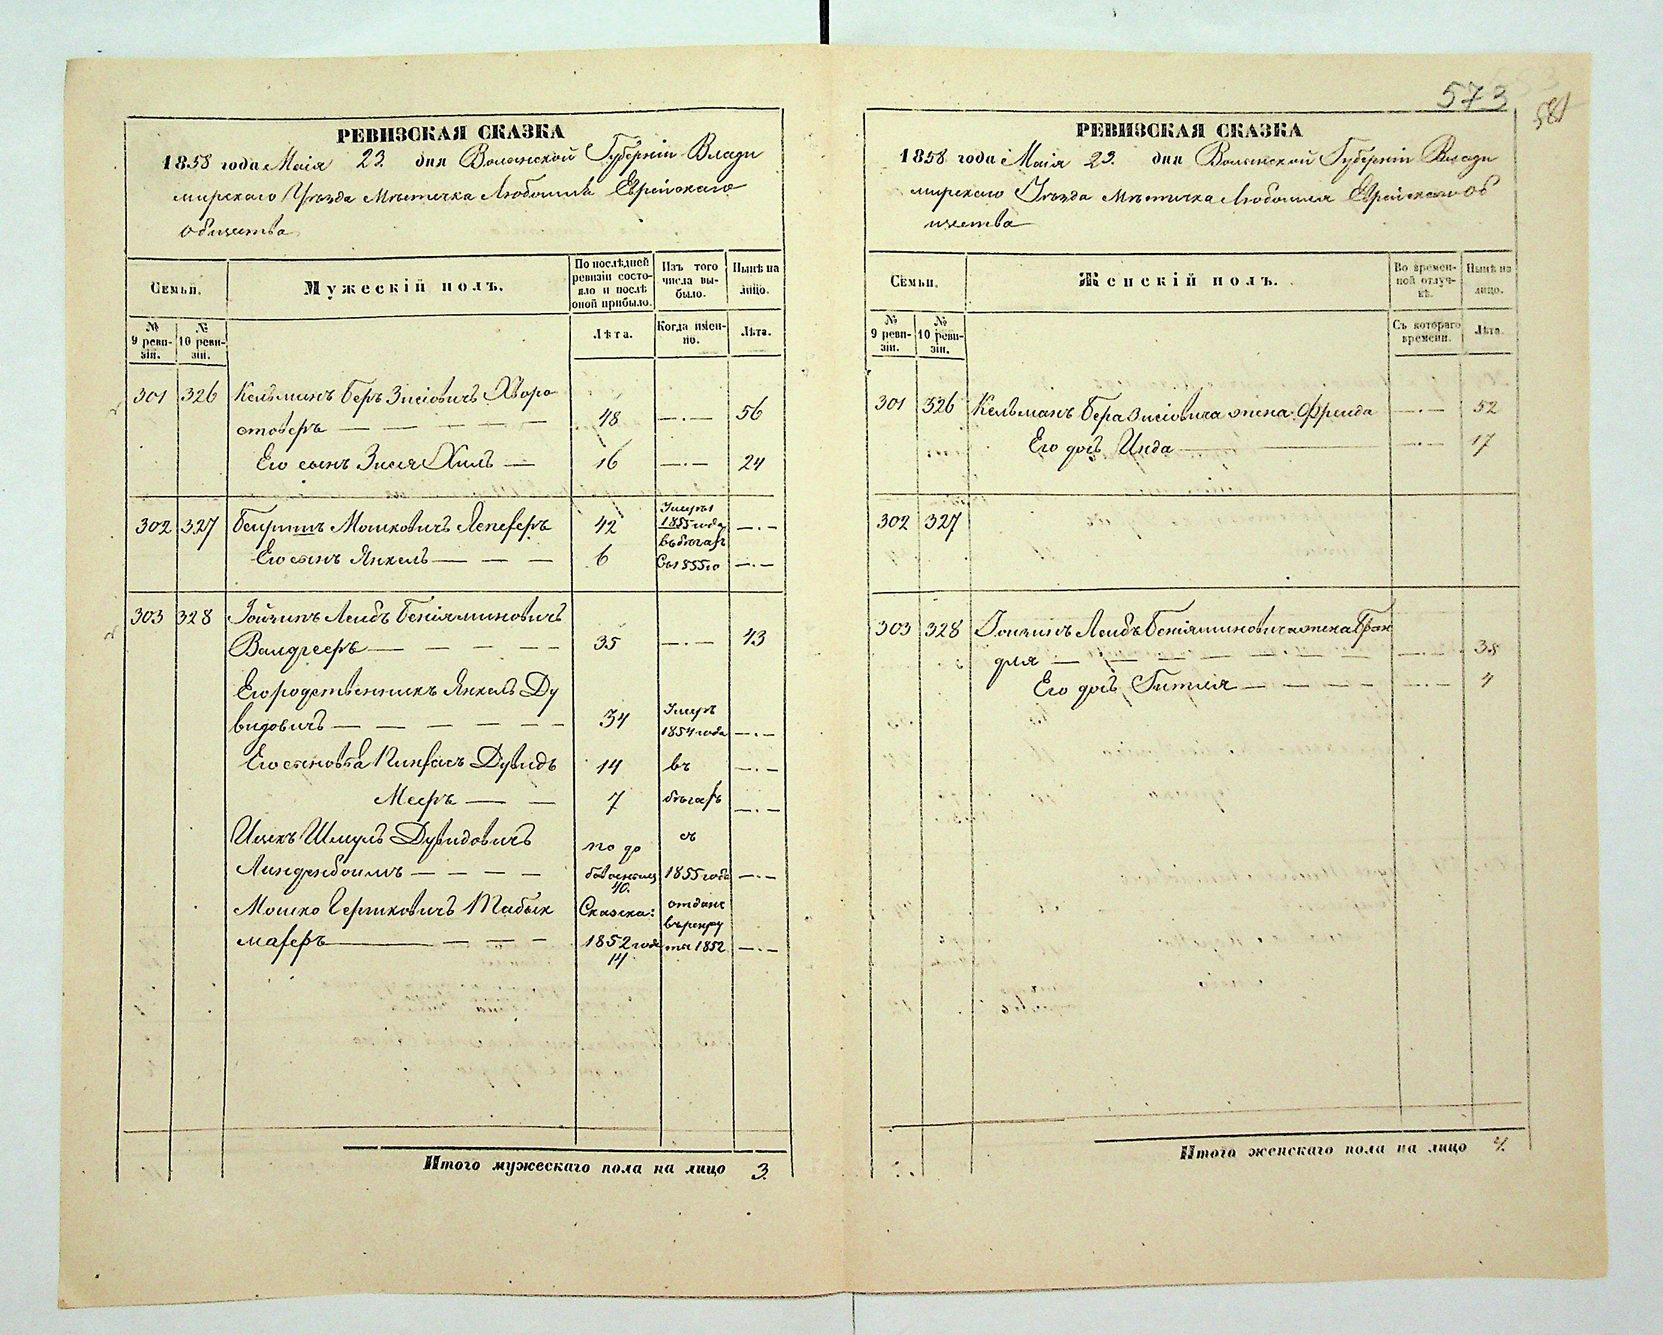 573
581
РЕВИЗСКАЯ СКАЗКА
1858 года Маія 23 дня Волынской Губерніи Влади
мирскаго Уѣзда Мѣстечка Любомля Еврейскаго
общества
Семьи.
Мужескій полъ.
По послѣдней ревизіи состояло и послѣ оной прибыло.
Изъ того числа выбыло.
Нынѣ на лицо.
№ 9 ревизіи.
№ 10 ревизіи.
Лѣта.
Когда именно.
Лѣта.
301 326 Кельманъ Беръ Зисіовичъ Хворо
стоверъ — — — — — 48 —.— 56
Его сынъ Зися Хиль — 16 —.— 24
302 327 Беиришъ Мошковичъ 42 Умеръ 1855 года —.—
Его сынъ Янкель — — — 6 въ бѣгахъ Съ 1855го —.—
303 328 Лейбъ Беніяминовичъ
— — — — 35 —.— 43
Его родственникъ Янкель Ду
видовичъ — — — — — 34 Умеръ 1854 года —.—
Его сыновья Пинхасъ Дувидъ 14 въ —.—
Мееръ — — 7 бѣгахъ —.—
Ицекъ Шмуль Дувидовичъ по до съ
Линденбоимъ — — — — 40. 1855 года —.—
Мошко Гершковичъ Табак Сказка: отданъ въ рекру
махеръ — — — 1852 года 14 ты 1852 —.—
Итого мужескаго пола на лицо 3.
РЕВИЗСКАЯ СКАЗКА
1858 года Маія 23. дня Волынской Губерніи Влади
мирскаго Уѣзда Мѣстечка Любомля Еврейскаго об
щества
Семьи.
Женскій полъ.
Во временной отлучкѣ.
Нынѣ на лицо.
№ 9 ревизіи.
№ 10 ревизіи.
Съ котораго времени.
Лѣта.
301 326 Кельманъ Бера Зисіовича жена Фрейда —.— 52
Его дочь Инда —.— 17
302 327
303 328 Лейбъ Беніяминовича жена
для — — — — — — — —.— 38
Его дочь Гитля — — — — —.— 4
Итого женскаго пола на лицо 4.